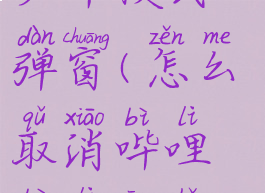 dàn chuāng zěn me
弹窗(怎么
qǔ xiāo bì lì
取消哔哩